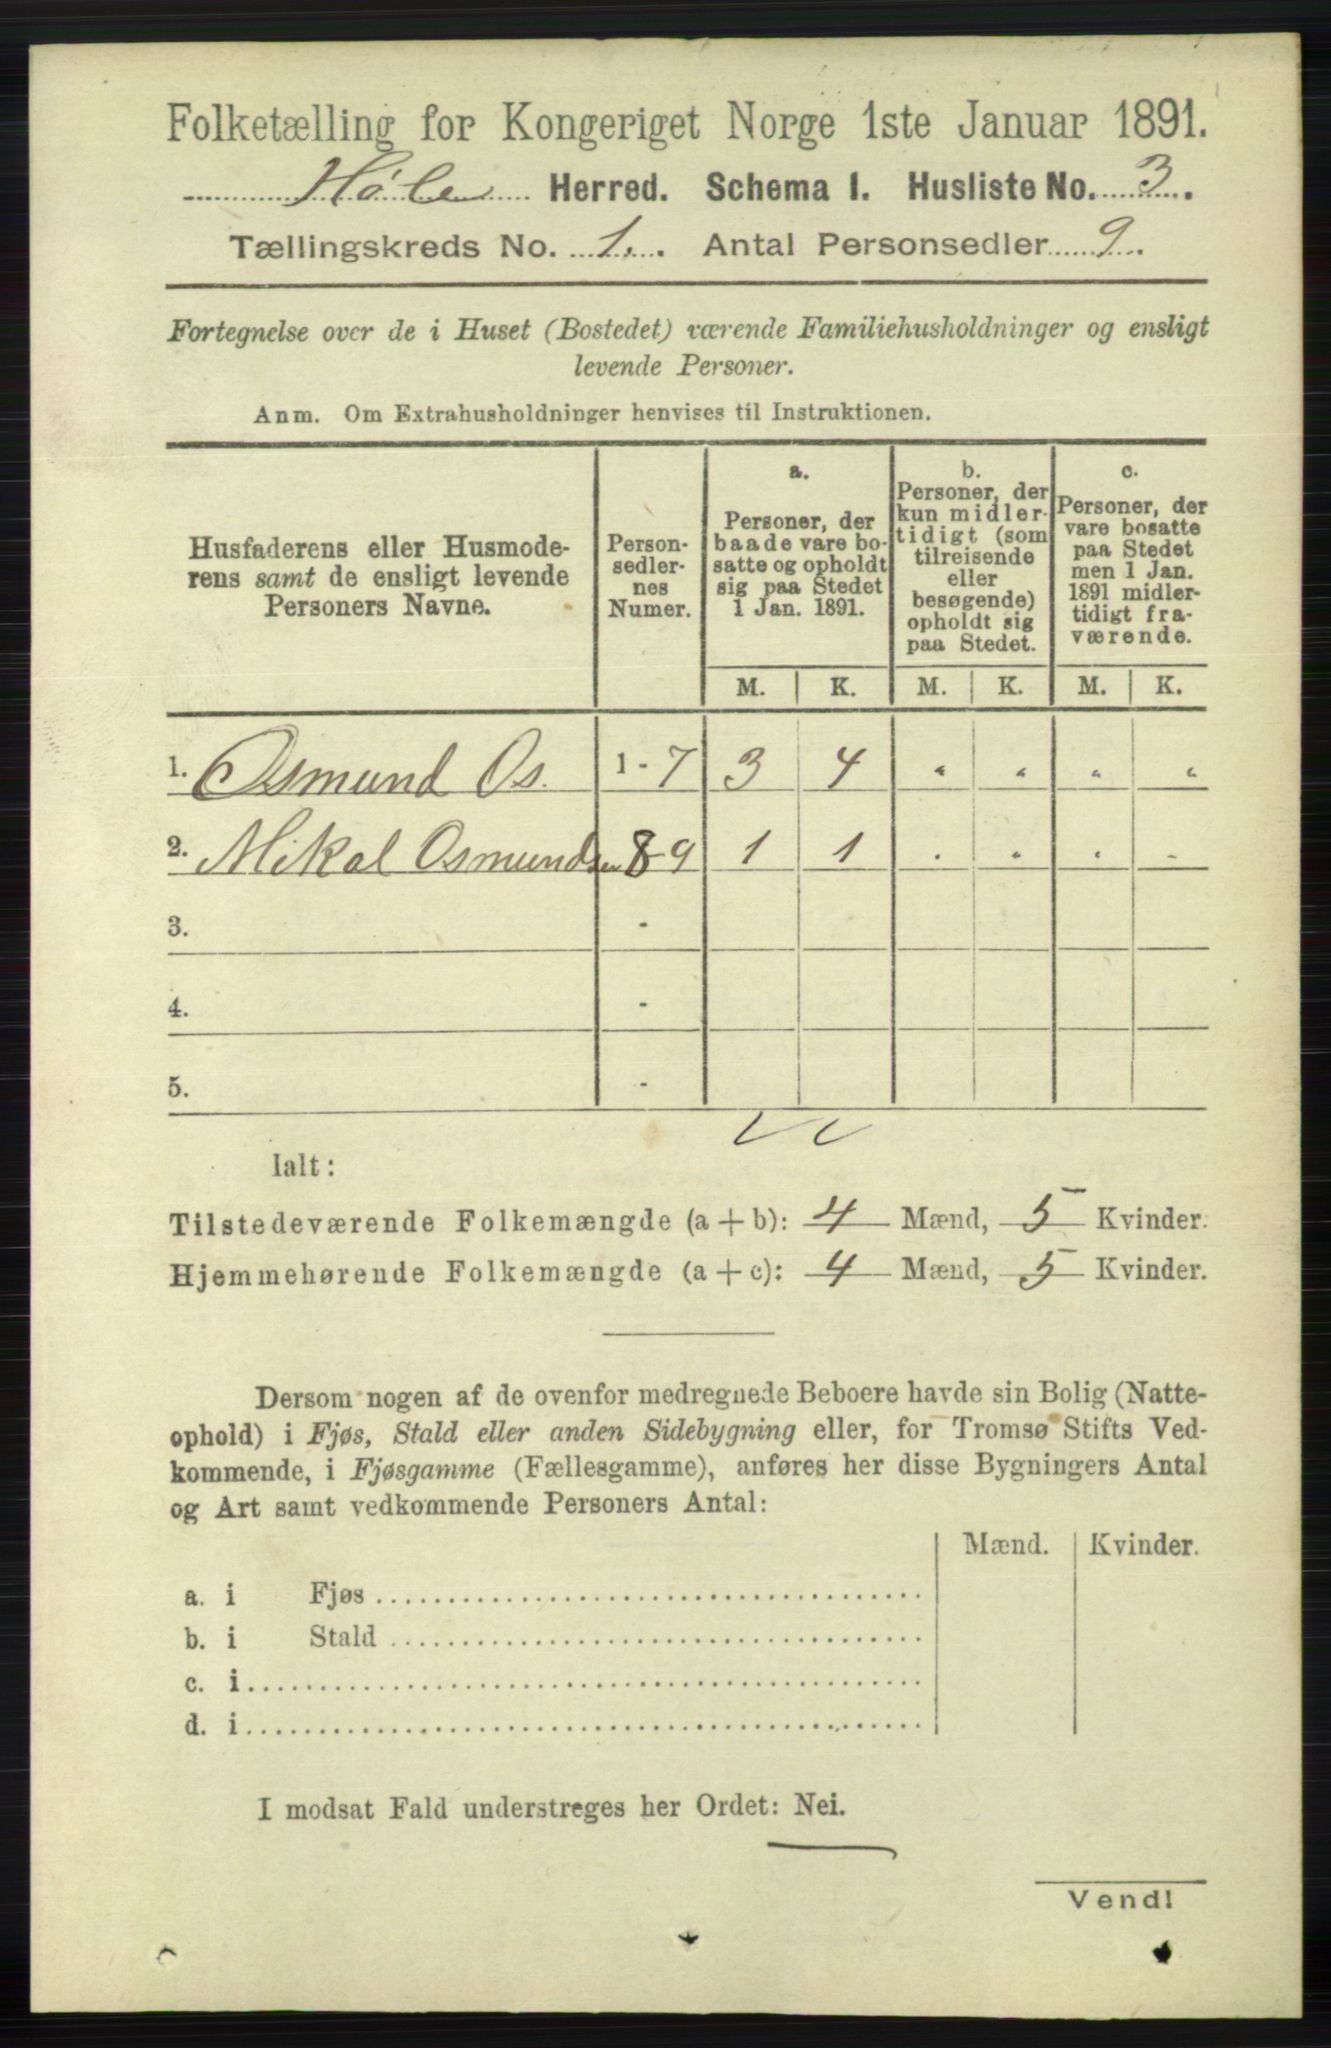 Folketælling for Kongeriget Norge 1ste Januar 1891.
Høle Herred. Schema I. Husliste No. 3.
Tællingskreds No. 1. Antal Personsedler 9.
Fortegnelse over de i Huset (Bostedet) værende Familiehusholdninger og ensligt
levende Personer.
Anm. Om Extrahusholdninger henvises til Instruktionen.
Husfaderens eller Husmode-
rens samt de ensligt levende
Personers Navne.
Person-
sedler-
nes
Numer.
a.
Personer, der
baade vare bo-
satte og opholdt
sig paa Stedet
1 Jan. 1891.
b.
Personer, der
kun midler-
tidigt (som
tilreisende
eller
besøgende)
opholdt sig
paa Stedet.
c.
Personer, der
vare bosatte
paa Stedet
men 1 Jan.
1891 midler-
tidigt fra-
værende.
M. K. M. K. M. K.
1. Osmund Os. 1-7 3 4 " " " "
2. Mikal Osmundsen 8-9 1 1 . " . -
3. -
4. -
5. -
Ialt:
Tilstedeværende Folkemængde (a+b): 4 Mænd, 5 Kvinder.
Hjemmehørende Folkemængde (a+c): 4 Mænd, 5 Kvinder.
Dersom nogen af de ovenfor medregnede Beboere havde sin Bolig (Natte-
ophold) i Fjøs, Stald eller anden Sidebygning eller, for Tromsø Stifts Ved-
kommende, i Fjøsgamme (Fællesgamme), anføres her disse Bygningers Antal
og Art samt vedkommende Personers Antal:
Mænd. Kvinder.
a. i Fjøs
b. i Stald
c. i
d. i
I modsat Fald understreges her Ordet: Nei.
Vend!